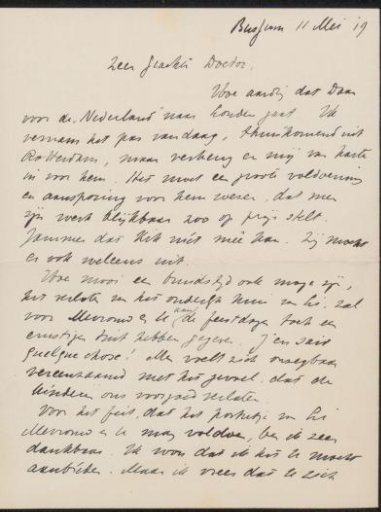 Bussum 11 Mei '19
Zeer Geachte Doctor,
Hoe aardig dat Daan
voor de Nederland naar Londen gaat. Ik
vernam het pas vandaag, thuiskomend uit
Rotterdam, maar verheug er mij van harte
in voor hem. Het moet een groote voldoening
en aansporing voor hem wezen, dat men
zijn werk blijkbaar zoo op prijs stelt.
Jammer dat niet mee kan. Zij mocht
er ook weleens uit.
Hoe mooi een bruidstijd ook moge zijn,
het verlaten van het ouderlijk huis van zal
voor Mevrouw en U aan de feestdagen toch een
ernstigen hebben gegeven. J'en sais
quelque chose! Men voelt zich onzegbaar
vereenzaamd met het gevoel dat de
kinderen ons voorgoed verlaten.
Voor het feit, dat het portretje van
Mevrouw en U mag voldoen, ben ik zeer
dankbaar. Ik wou dat ik het U mocht
aanbieden. Maar ik vrees dat U zich